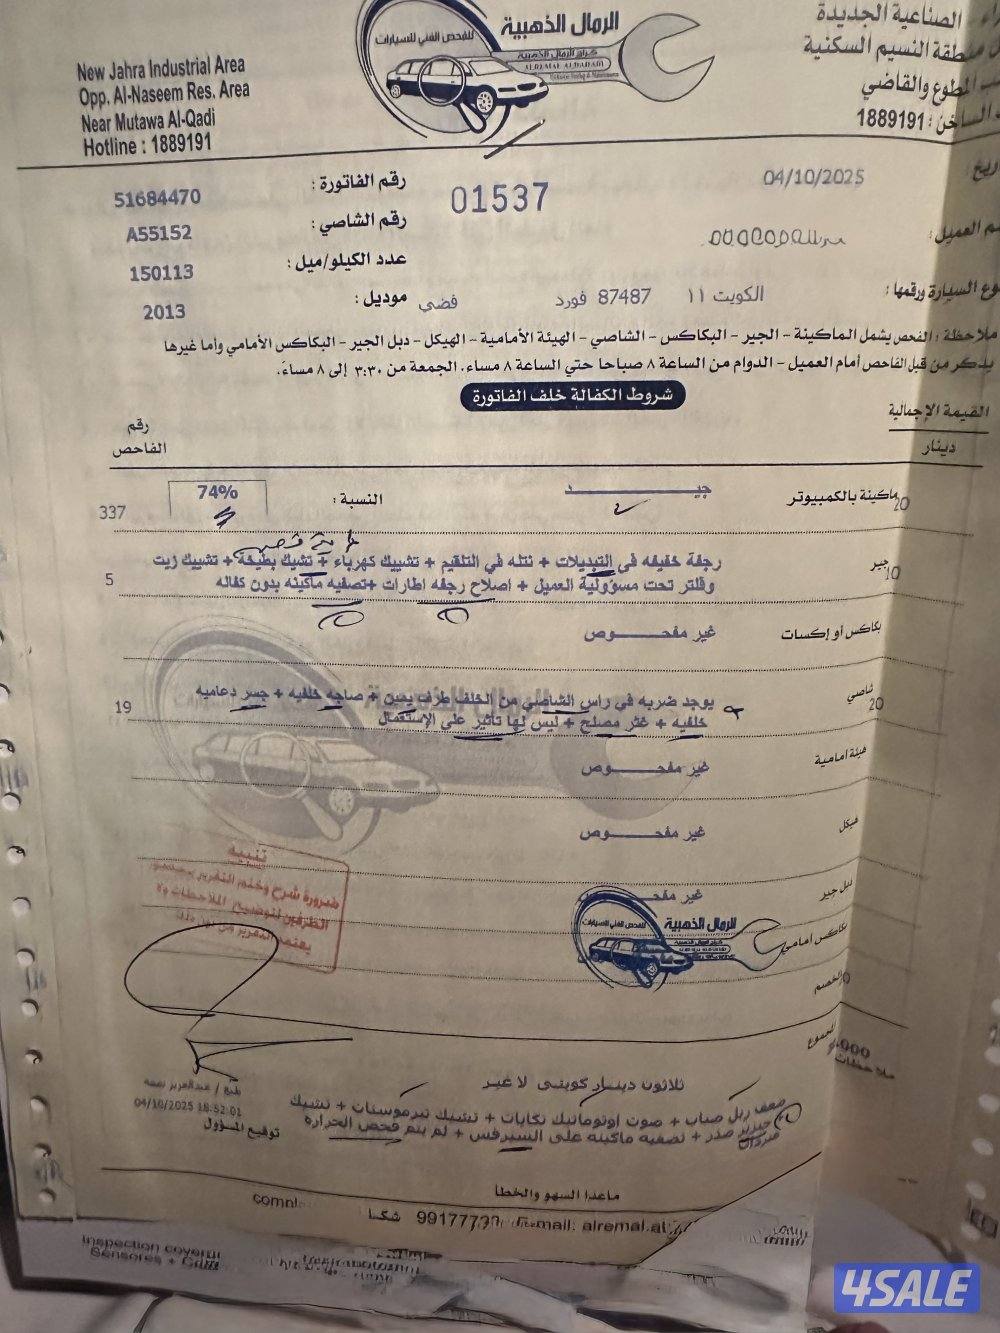 الرمال الذهبية
للفحص الفني للسيارات
كراج الرمال الذهبية
الصناعية الجديدة
منطقة النسيم السكنية
المطوع والقاضي
الساخن : 1889191
New Jahra Industrial Area
Opp. Al-Naseem Res. Area
Near Mutawa Al-Qadi
Hotline : 1889191
04/10/2025
01537
رقم الفاتورة : 51684470
رقم الشاصي : A55152
العميل :
عدد الكيلو/ميل : 150113
نوع السيارة ورقمها : الكويت ١١ 87487 فورد فضي
موديل : 2013
ملاحظة : الفحص يشمل الماكينة - الجير - البكاكس - الشاصي - الهيئة الأمامية - الهيكل - دبل الجير - البكاكس الأمامي وأما غيرها
يذكر من قبل الفاحص أمام العميل - الدوام من الساعة ٨ صباحا حتي الساعة ٨ مساء. الجمعة من ٣:٣٠ إلى ٨ مساءً.
شروط الكفالة خلف الفاتورة
القيمة الإجمالية
دينار
رقم الفاحص
ماكينة بالكمبيوتر 20 جيـــــد النسبة : 74% 337
جير 10 رجفة خفيفه في التبديلات + نتله في التلقيم + تشييك كهرباء + تشيك بطيخه + تشييك زيت
وفلتر تحت مسؤولية العميل + اصلاح رجفه اطارات +تصفيه ماكينه بدون كفاله 5
بكاكس أو إكسات غير مفحـــــوص
شاصي 20 يوجد ضربه في راس الشاصي من الخلف طرف يمين + صاجه خلفيه + جسر دعاميه
خلفيه + غير مصلح + ليس لها تأثير على الإستعمال 19
هيئة امامية غير مفحـــــوص
هيكل غير مفحـــــوص
دبل جير غير مفحـــــوص
بكاكس امامي
الرمال الذهبية
للفحص الفني للسيارات
الخصم
المجموع
تنبيه
ضرورة شرح وختم التقرير
الطرفين لتوضيح الملاحظات ولا
يعتمد التقرير من دون ذلك
ملاحظات
ثلاثون دينار كويتي لا غير
ضعف ربل صناب + صوت اوتوماتيك تكايات + تشيك ثيرموستات + تشيك
جنزير صدر + تصفيه ماكينه على السيرفس + لم يتم فحص الحرارة
04/10/2025 18:52:01
توقيع المسؤول
ماعدا السهو والخطأ
99177733
E-mail: alremal.al
Inspection
Sensores +
4SALE